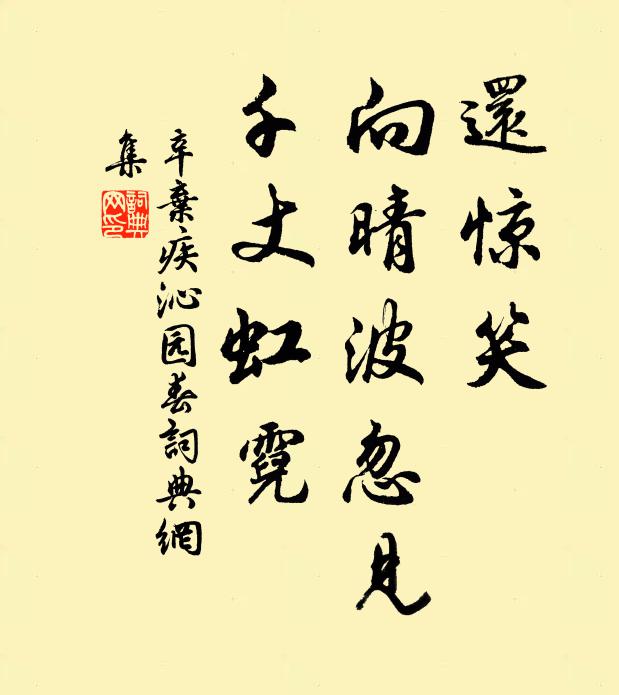 還惊笑
向晴波忽見
千丈虹霓
辛棄疾沁园春詞典網
集
詞典
网印